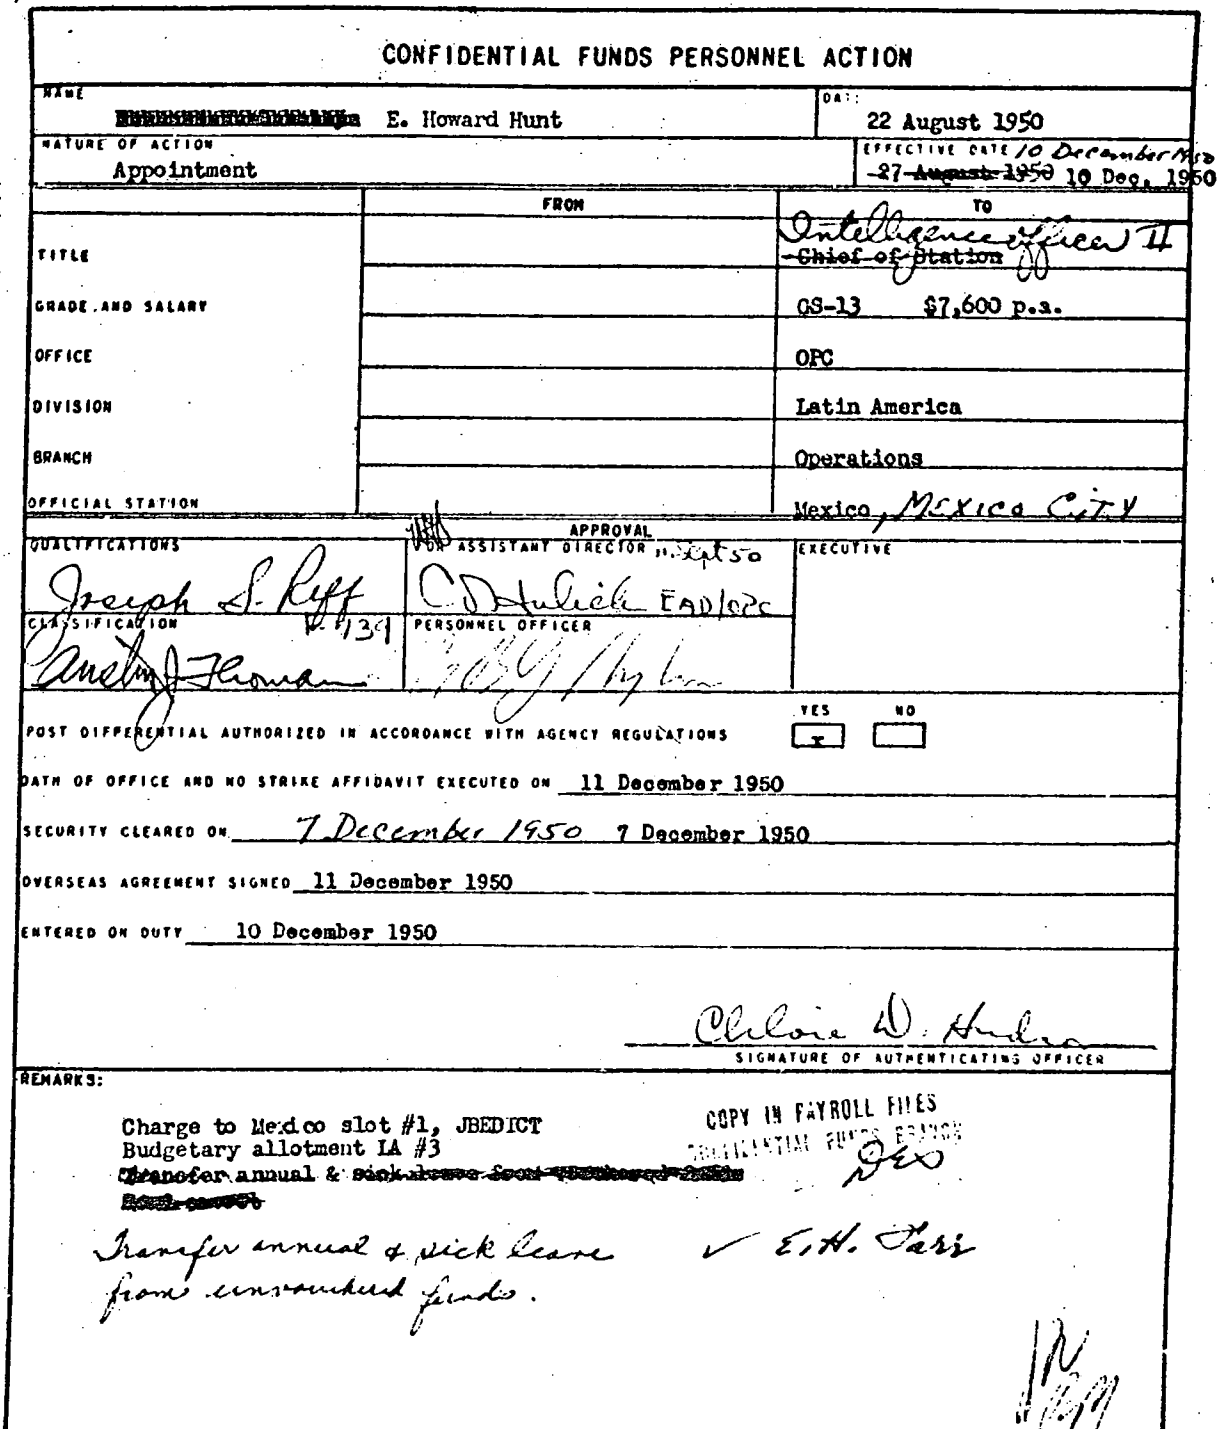 CONFIDENTIAL FUNDS PERSONNEL ACTION
NAME
E. Howard Hunt
DATE
22 August 1950
NATURE OF ACTION
Appointment
EFFECTIVE DATE 10 December 1950
27 August 1950 10 Dec. 1950
FROM
TO
TITLE
Intelligence Officer II
Chief of Station
GRADE AND SALARY
GS-13 $7,600 p.a.
OFFICE
OPC
DIVISION
Latin America
BRANCH
Operations
OFFICIAL STATION
Mexico, MEXICO CITY
APPROVAL
QUALIFICATIONS
FOR ASSISTANT DIRECTOR 11 Sept 50
EXECUTIVE
Joseph S. Reff
EAD/OPC
CLASSIFICATION
PERSONNEL OFFICER
YES NO
POST DIFFERENTIAL AUTHORIZED IN ACCORDANCE WITH AGENCY REGULATIONS x
OATH OF OFFICE AND NO STRIKE AFFIDAVIT EXECUTED ON 11 December 1950
SECURITY CLEARED ON 7 December 1950 7 December 1950
OVERSEAS AGREEMENT SIGNED 11 December 1950
ENTERED ON DUTY 10 December 1950
SIGNATURE OF AUTHENTICATING OFFICER
REMARKS:
Charge to Mexico slot #1, JBEDICT
Budgetary allotment LA #3
Transfer annual & sick leave from
COPY IN PAYROLL FILES
CONFIDENTIAL FUNDS BRANCH
Transfer annual & sick leave
from unvouchered funds.
✓ E.H. Tarr